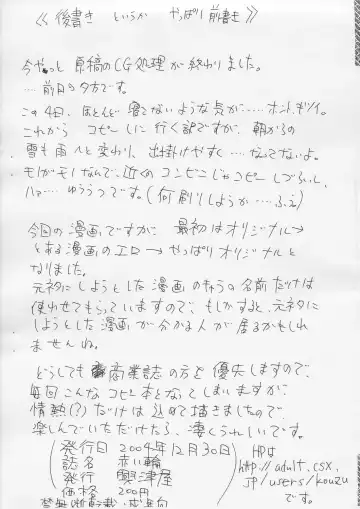 《後書き というか やっぱり前書き》
今やっと原稿のCG処理が終わりました。
…前日の夕方です。
この4日、ほとんど寝てないような気が……ホント、キツイ。
これから コピーしに行く訳ですが、朝からの
雪も雨へと変わり、出掛けやすく…なってないよ。
モノがモノなんで、近くのコンビニじゃコピーしづらいし、
ハァ… ゆううつです。(何刷りしようか…ふぇ)
今回の漫画ですが、最初はオリジナル→
とある漫画のエロ→やっぱりオリジナルと
なりました。
元ネタにしようとした漫画のキャラの名前だけは
使わせてもらっていますので、もしかすると、元ネタに
しようとした漫画が分かる人が居るかもしれ
ませんね。
どうしても商業誌の方を優先しますので、
毎回こんなコピー本となってしまいますが、
情熱(?)だけは込めて描きましたので、
楽しんでいただけたら、凄くうれしいです。
発行日 2004年12月30日
誌名 赤い輪
発行 興津屋
価格 200円
禁無断転載・成年向
HPは
http://adult.csx.
jp/users/kouzu
です。